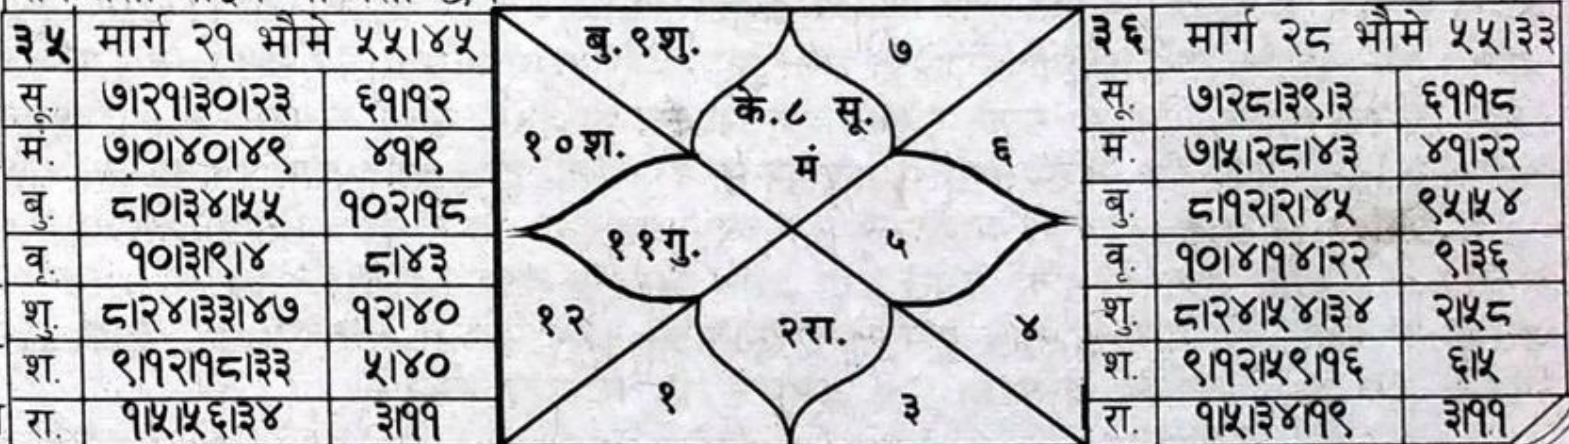 ३५ मार्ग २१ भौमे ५५।४५
सू. ७।२१।३०।२३ ६१।१२
मं. ७।०।४०।४९ ४१।९
बु. ८।०।३४।५५ १०२।१८
वृ. १०।३।९।४ ८।४३
शु. ८।२४।३३।४७ १२।४०
श. ९।१२।१८।३३ ५।४०
रा. १।५।५६।३४ ३।११
बु. ९ शु.
७
के. ८ सू.
मं
१० श.
६
११ गु.
५
१२
२ रा.
४
१
३
३६ मार्ग २८ भौमे ५५।३३
सू. ७।२८।३९।३ ६१।१८
म. ७।५।२८।४३ ४१।२२
बु. ८।१२।२।४५ ९५।५४
वृ. १०।४।१४।२२ ९।३६
शु. ८।२४।५४।३४ २।५८
श. ९।१२।५९।१६ ६।५
रा. १।५।३४।१९ ३।११